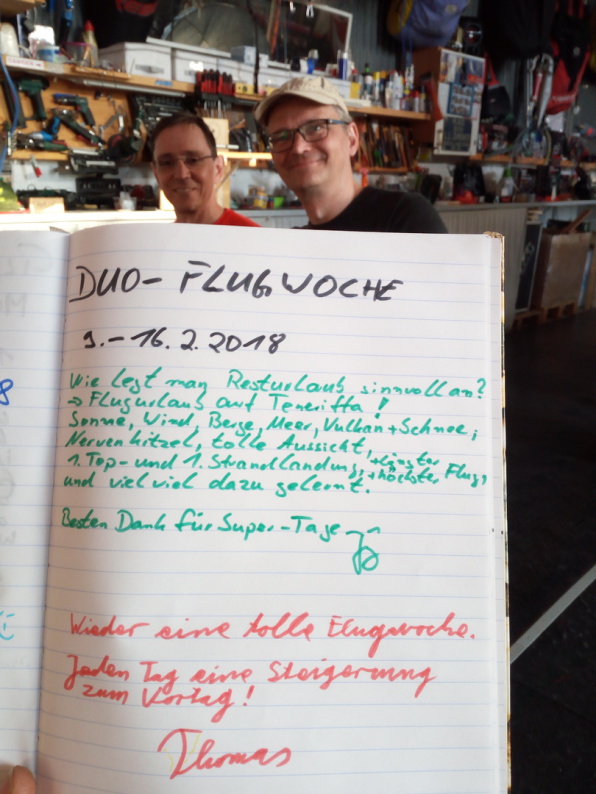 DUO-FLUGWOCHE
9.-16.2.2018
Wie legt man Resturlaub sinnvoll an?
→ Flugurlaub auf Teneriffa!
Sonne, Wind, Berge, Meer, Vulkan + Schnee,
Nervenkitzel, tolle Aussicht, + längster
1. Top- und 1. Strandlandung, + höchster Flug,
und viel viel dazu gelernt.
Besten Dank für Super-Tage
Wieder eine tolle Flugwoche.
Jeden Tag eine Steigerung
zum Vortag!
Thomas